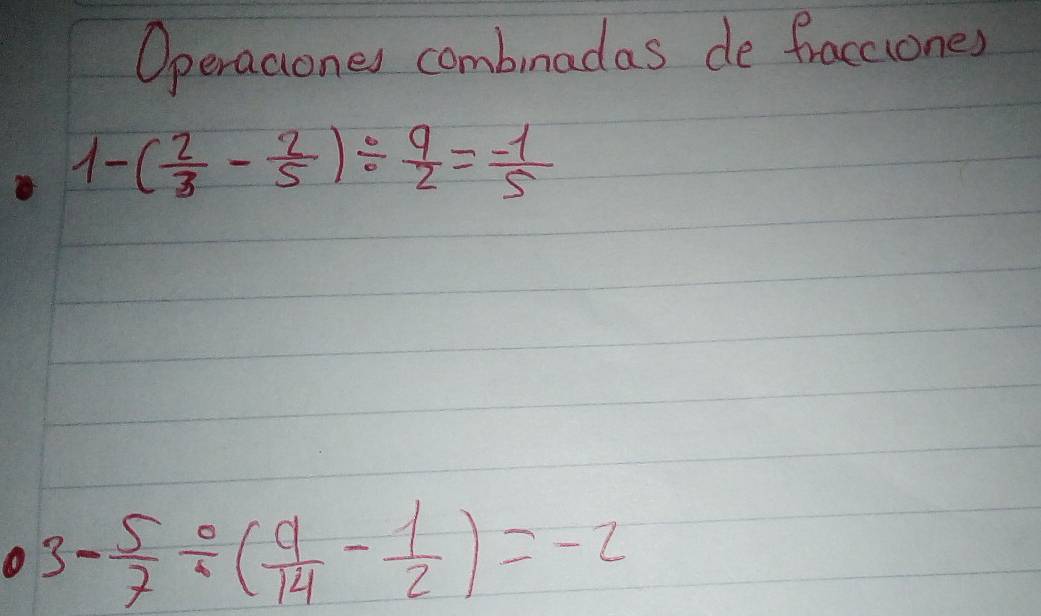 Operaciones combinadas de fracciones
1-(2/3 - 2/5) ÷ 9/2 = -1/5
3-5/7 ÷ (9/14 - 1/2) = -2